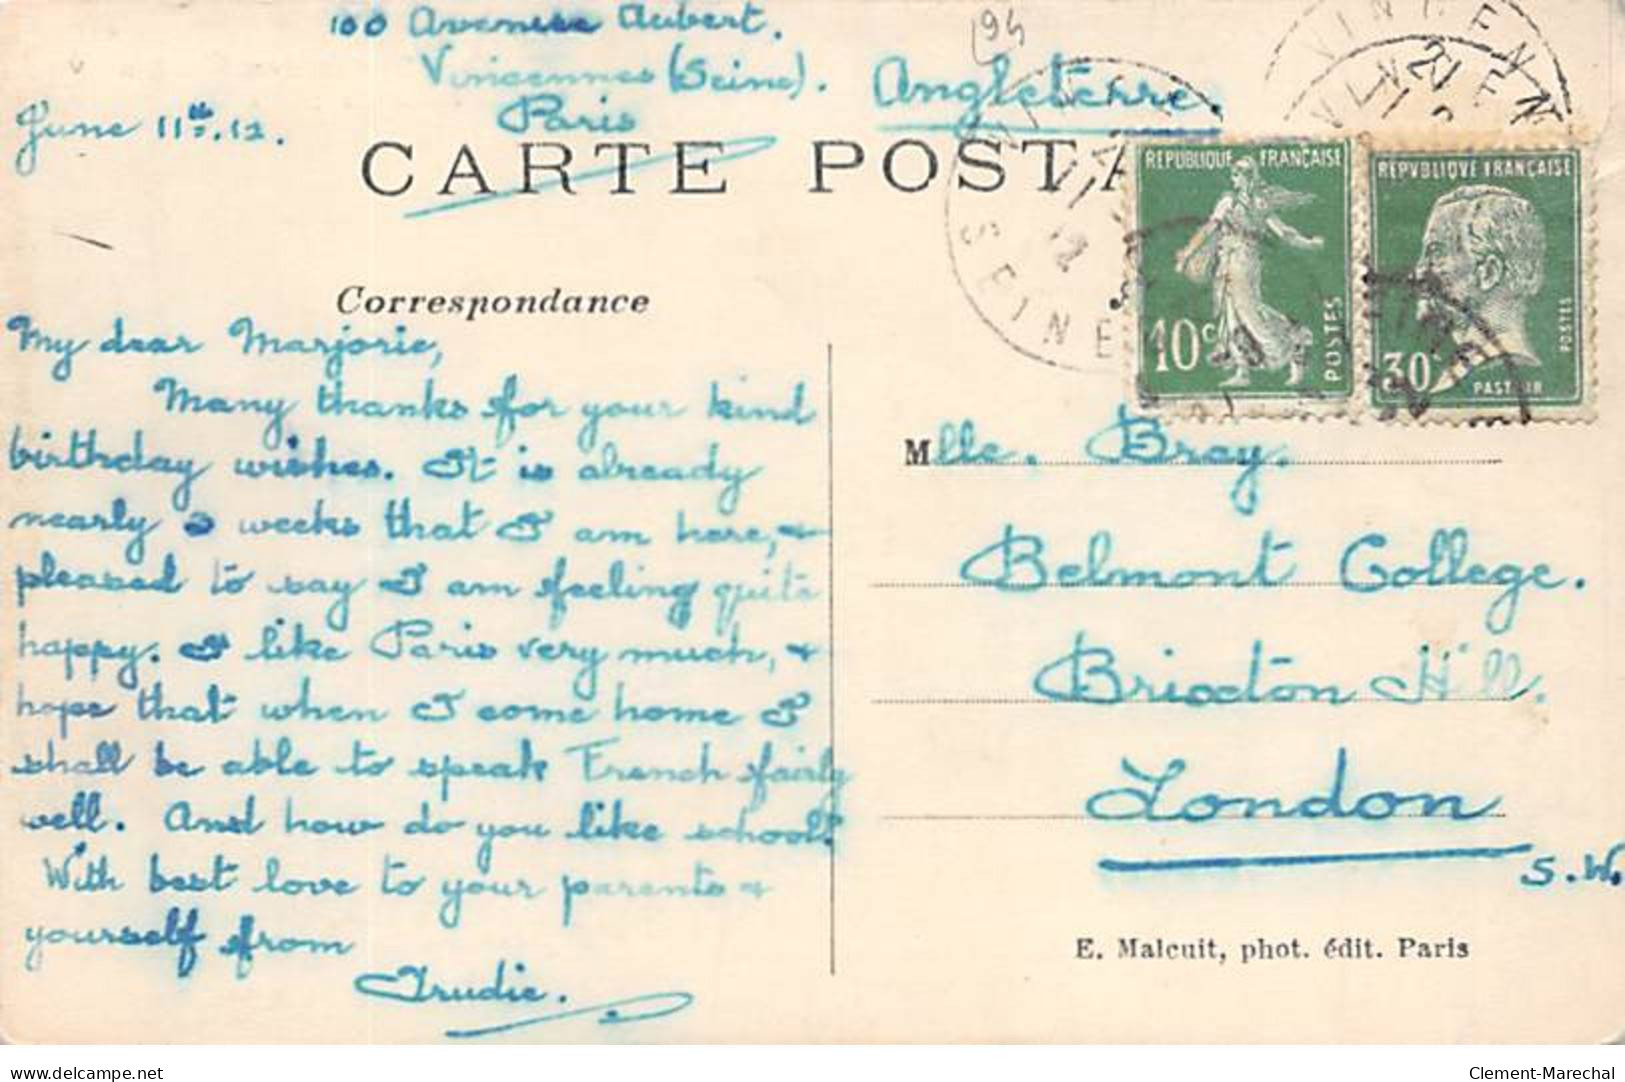 100 Avenue Aubert.
Vincennes (Seine).
Paris
June 11th. 12.
94
Angleterre.
CARTE POSTA
REPUBLIQUE FRANÇAISE
10c
POSTES
REPVBLIQVE FRANÇAISE
30
POSTES
PASTEUR
SEINE
VINCEN
Correspondance
My dear Marjorie,
Many thanks for your kind
birthday wishes. It is already
nearly weeks that I am here, +
pleased to say I am feeling quite
happy. I like Paris very much, +
hope that when I come home I
shall be able to speak French fairly
well. And how do you like school?
With best love to your parents +
yourself from
Trudie.
Mlle. Bray.
Belmont College.
Brixton Hill.
London
S.W.
E. Malcuit, phot. édit. Paris
Clement-Marechal
delcampe.net